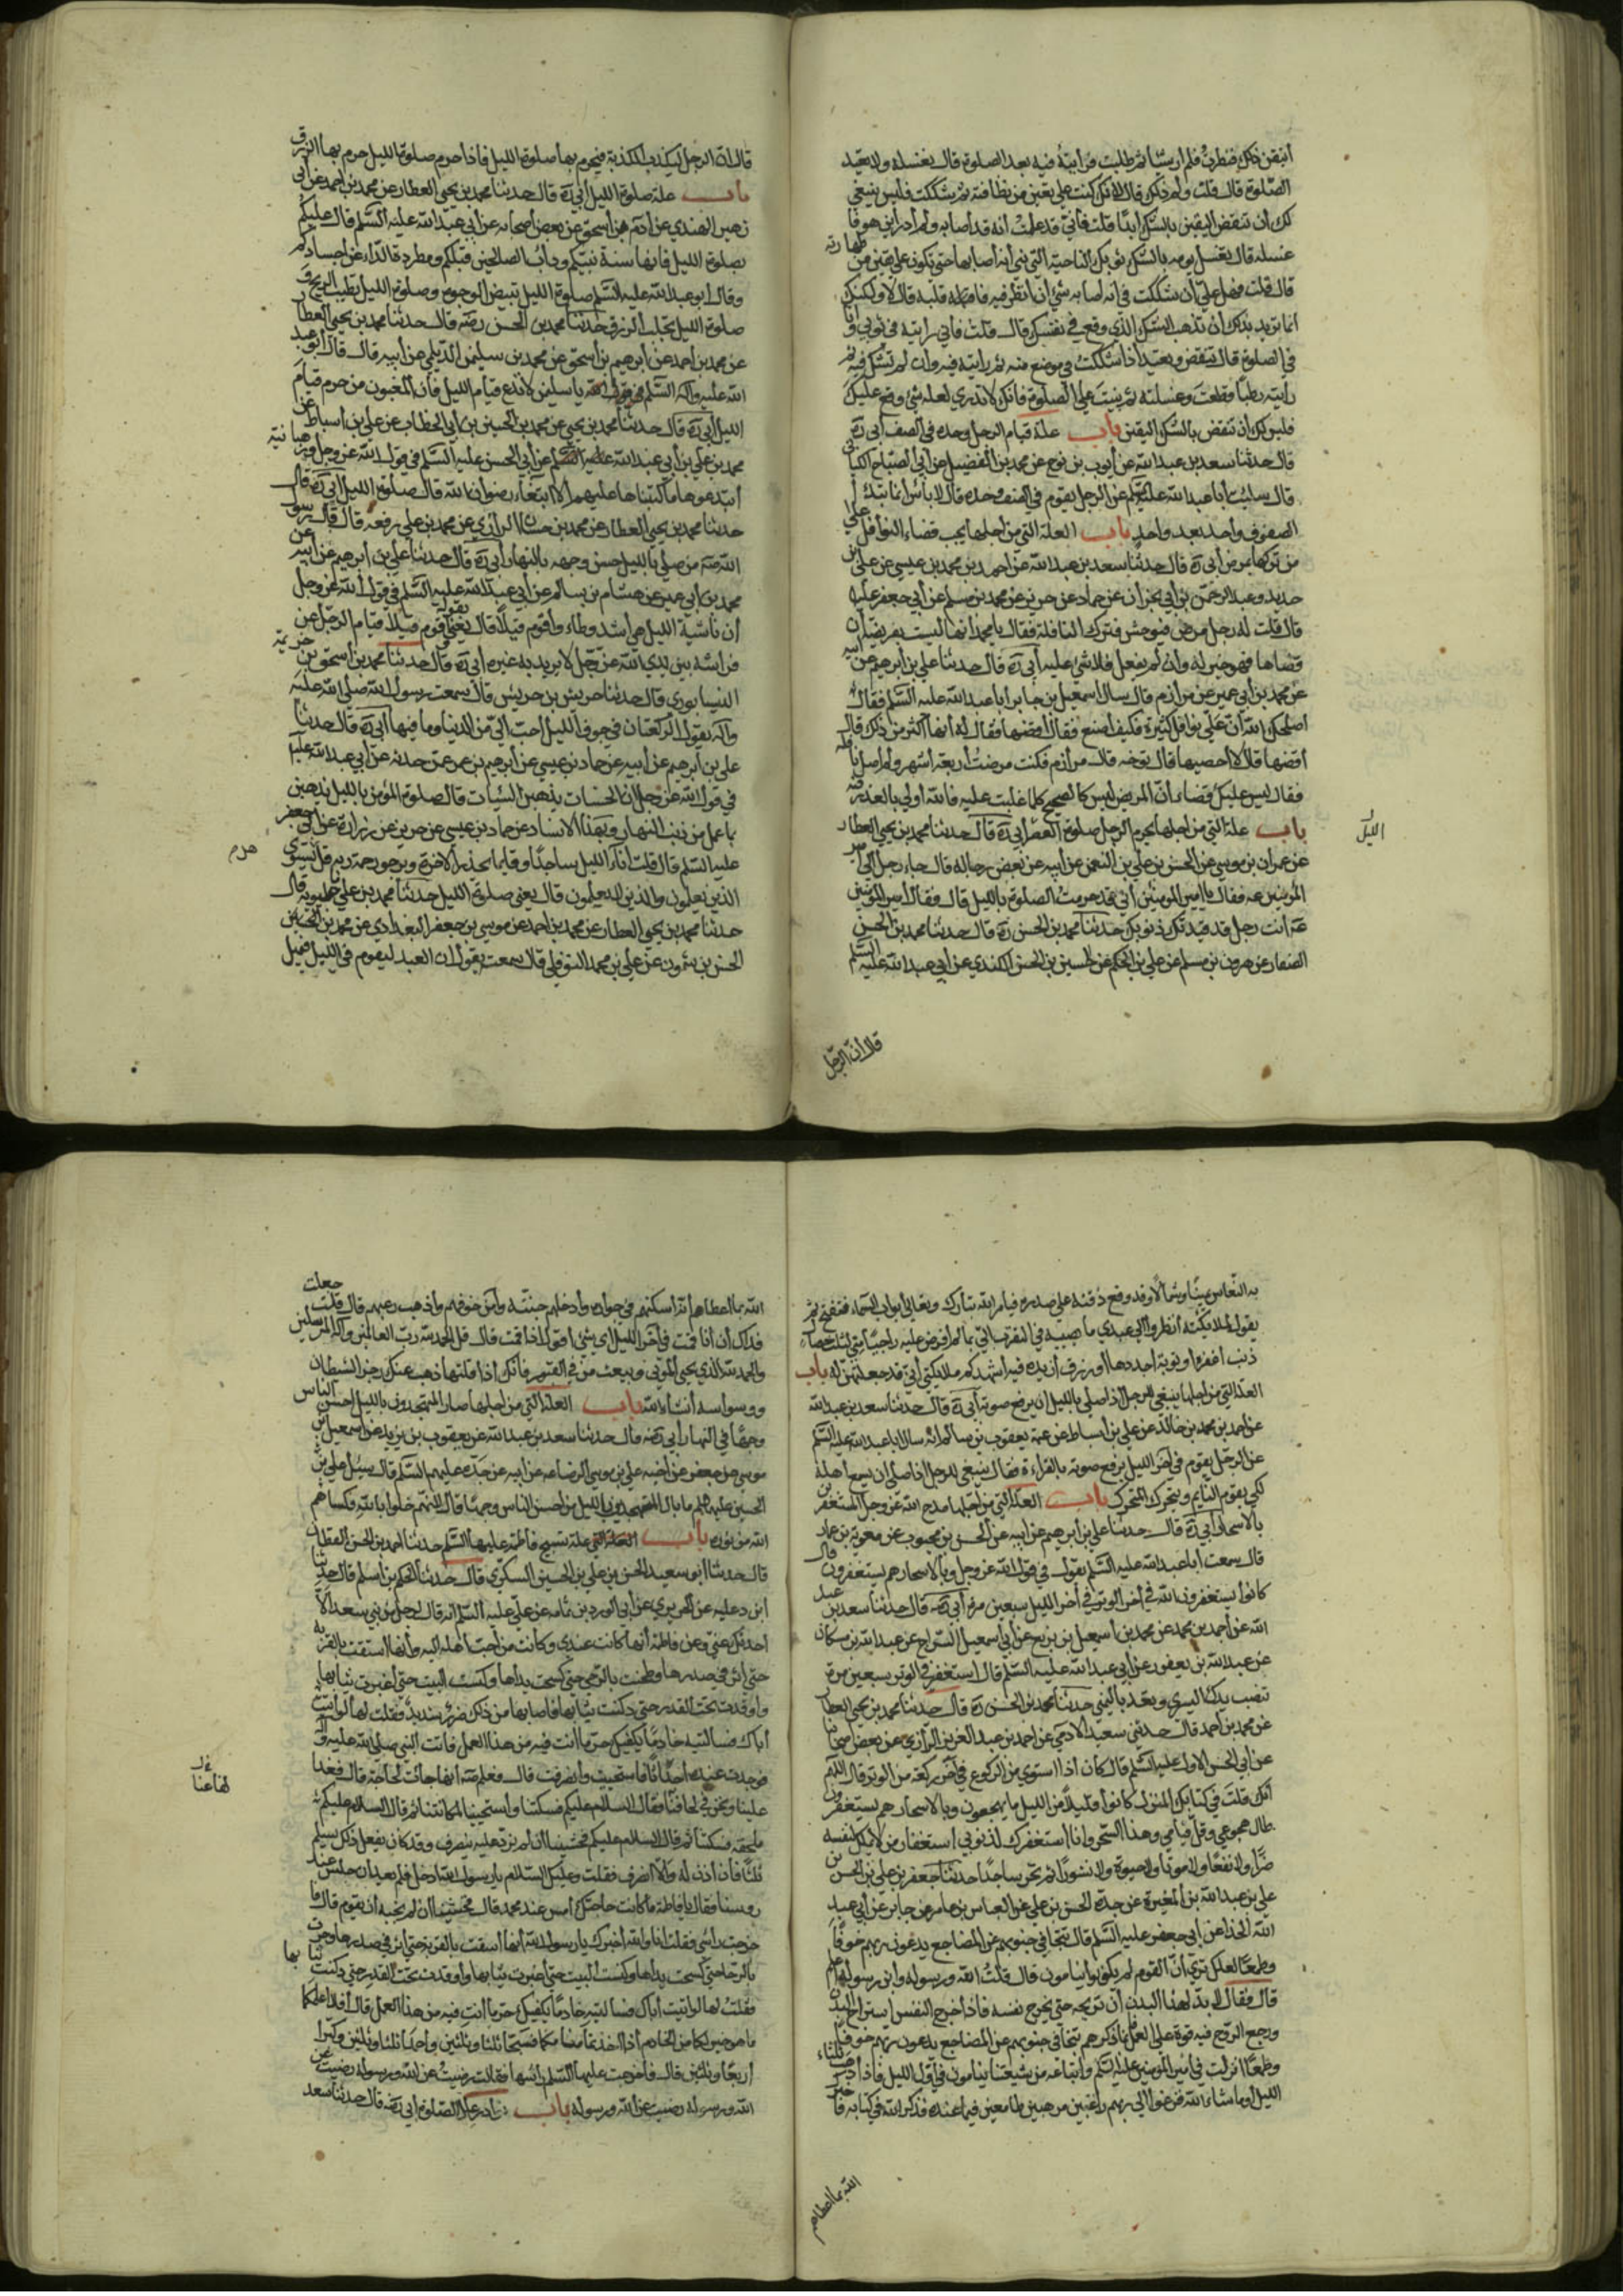 اتيقن ذلك فنظرت فلم ار شيئا ثم طلبت فرأيته فيه بعد الصلوة قال يغسله ولا يعيد
الصلوة قال قلت ولم ذلك قال لانك كنت على يقين من نظافته ثم شككت فليس ينبغي
لك ان تنقض اليقين بالشك ابدا قلت فاني قد علمت انه قد اصابه ولم ادر اين هو فا
غسله قال تغسل ثوبه بالشك ثوبك الناحية التي ترى انه اصابها حتى تكون على يقين من طهارته
قال قلت فهل علي ان شككت في انه اصابه شئ ان انظر فيه فاقلبه قال لا ولكنك
انما تريد بذلك ان تذهب الشك الذي وقع في نفسك قال قلت فاني رايته في ثوبي وانا
في الصلوة قال تنقض وتعيد اذا شككت في موضع منه ثم رايته فيه وان لم تشك فيه ثم
رايته رطبا قطعت وغسلته ثم بنيت على الصلوة فانك لا تدري لعله شئ وقع عليك
فليس لك ان تنقض بالشك اليقين باب علة قيام الرجل وحده في الصف ابي ره
قال حدثنا سعد بن عبد الله عن ايوب بن نوح عن محمد بن الفضيل عن ابي الصباح الكناني
قال سالت ابا عبد الله عليه السلم عن الرجل يقوم في الصف وحده قال لا باس انما تبدأ
الصفوف واحد بعد واحد باب العلة التي من اجلها يجب قضاء النوافل على
من تركها بمرض ابي ره قال حدثنا سعد بن عبد الله عن احمد بن محمد بن عيسى عن علي بن
حديد وعبد الرحمن بن ابي نجران عن حماد عن حريز عن محمد بن مسلم عن ابي جعفر عليه
قال قلت له رجل مرض فتوحش فترك النافلة فقال يا محمد انها ليست بفريضة ان
قضاها فهو خير له وان لم يفعل فلا شئ عليه ابي ره قال حدثنا علي بن ابرهيم عن ابيه
عن محمد بن ابي عمير عن مرازم قال سال اسمعيل بن جابر ابا عبد الله عليه السلم فقال
اصلحك الله ان علي نوافل كثيرة فكيف اصنع فقال اقضها فقال له انها اكثر من ذلك قال
اقضها قال لا احصيها قال توخه قال مرازم فكنت مرضت اربعة اشهر ولم اصل نافلة
فقال ليس عليك قضاء ان المريض ليس كالصحيح كلما غلبت عليه فالله اولى بالعذر فيه
باب علة التي من اجلها يحرم الرجل صلوة العصر ابي ره قال حدثنا محمد بن يحيى العطار
الليل
عن عمران بن موسى عن الحسن بن علي بن النعمن عن ابيه عن بعض رجاله قال جاء رجل الى امير
المؤمنين عه فقال يا امير المومنين اني قد حرمت الصلوة بالليل قال فقال امير المومنين
عه انت رجل قد قيدتك ذنوبك حدثنا محمد بن الحسن ره قال حدثنا محمد بن الحسن
الصفار عن هرون بن مسلم عن علي بن الحكم عن الحسين بن الحسن الكندي عن ابي عبد الله عليه السلم
قال ان الرجل
قال ان الرجل ليكذب الكذبة فيحرم بها صلوة الليل فاذا حرم صلوة الليل حرم بها الرزق
باب علة صلوة الليل ابي ره قال حدثنا محمد بن يحيى العطار عن محمد بن احمد عن ابي
زهير النهدي عن ادم بن اسحق عن بعض اصحابه عن ابي عبد الله عليه السلم قال عليكم
بصلوة الليل فانها سنة نبيكم وداب الصالحين قبلكم ومطردة الداء عن اجسادكم
وقال ابو عبد الله عليه السلم صلوة الليل تبيض الوجوه وصلوة الليل تطيب الريح و
صلوة الليل تجلب الرزق حدثنا محمد بن الحسن رضه قال حدثنا محمد بن يحيى العطار
عن محمد بن احمد عن ابرهيم بن اسحق عن محمد بن سليمن الديلمي عن ابيه قال قال ابو عبد
الله عليه السلم يا سليمن لا تدع قيام الليل فان المغبون من حرم قيام
الليل ابي ره قال حدثنا محمد بن يحيى عن محمد بن الحسين بن ابي الخطاب عن علي بن اسباط عن
محمد بن علي بن ابي عبد الله عن ابي الحسن عليه السلم في قول الله عز وجل ورهبانية
ابتدعوها ما كتبناها عليهم الا ابتغاء رضوان الله قال صلوة الليل ابي ره قال
حدثنا محمد بن يحيى العطار عن محمد بن حسان الرازي عن محمد بن علي رفعه قال قال رسول
الله صه من صلى بالليل حسن وجهه بالنهار ابي ره قال حدثنا علي بن ابرهيم عن ابيه عن
محمد بن ابي عمير عن هشام بن سالم عن ابي عبد الله عليه السلم في قول الله عز وجل
ان ناشئة الليل هي اشد وطاء واقوم قيلا قال يعني بقوله واقوم قيلا قيام الرجل عن
فراشه بين يدي الله عز وجل لا يريد به غيره ابي ره قال حدثنا محمد بن اسحق بن خزيمة
النيسابوري قال حدثنا حريش بن حريش قال سمعت رسول الله صلى الله عليه
وآله يقول الركعتان في جوف الليل احب الي من الدنيا وما فيها ابي ره قال حدثنا
علي بن ابرهيم عن ابيه عن حماد بن عيسى عن ابرهيم بن عمر عمن حدثه عن ابي عبد الله عليه
في قول الله عز وجل ان الحسنات يذهبن السيئات قال صلوة المؤمن بالليل يذهبن
بما عمل من ذنب النهار وبهذا الاسناد عن حماد بن عيسى عن حريز عن زرارة عن ابي جعفر
عليه السلم قال قلت اناء الليل ساجدا وقائما يحذر الاخرة ويرجو رحمة ربه قل هل يستوي
الذين يعلمون والذين لا يعلمون قال يعني صلوة الليل حدثنا محمد بن علي ماجيلويه قال
حدثنا محمد بن يحيى العطار عن محمد بن احمد عن موسى بن جعفر البغدادي عن محمد بن الحسن
الحسن بن شمون عن علي بن محمد النوفلي قال سمعته يقول ان العبد ليقوم في الليل فيميل
به النعاس يمينا وشمالا وقد وقع ذقنه على صدره فيامر الله تبارك وتعالى ابواب السماء فتفتح ثم
يقول لملائكته انظروا الى عبدي ما يصيبه في التقرب الي بما لم افرض عليه راجيا مني لثلث خصال
ذنب اغفره او توبة اجددها او رزق ازيده فيه اشهدكم ملائكتي اني قد جمعتهن له باب
العلة التي من اجلها ينبغي للرجل اذا صلى بالليل ان يرفع صوته ابي ره قال حدثنا سعد بن عبد الله
عن احمد بن محمد بن خالد عن علي بن اسباط عن عمه يعقوب بن سالم انه سال ابا عبد الله عليه السلم
عن الرجل يقوم في اخر الليل يرفع صوته بالقراءة فقال ينبغي للرجل اذا صلى ان يسمع اهله
لكي يقوم النايم ويتحرك المتحرك باب العلة التي من اجلها مدح الله عز وجل المستغفرين
بالاسحار ابي ره قال حدثنا علي بن ابرهيم عن ابيه عن الحسن بن محبوب عن معوية بن عمار
قال سمعت ابا عبد الله عليه السلم يقول في قول الله عز وجل وبالاسحار هم يستغفرون قال
كانوا يستغفرون الله في اخر الوتر في اخر الليل سبعين مرة ابي ره قال حدثنا سعد بن عبد
الله عن احمد بن محمد عن محمد بن اسمعيل بن بزيع عن ابي اسمعيل السراج عن عبد الله بن مسكان
عن عبد الله بن يعفور عن ابي عبد الله عليه السلم قال استغفر في الوتر سبعين مرة
تنصب يدك اليسرى وتعد باليمنى حدثنا محمد بن الحسن ره قال حدثنا محمد بن يحيى العطار
عن محمد بن احمد قال حدثني سعيد الادمي عن احمد بن عبد العزيز الرازي عن بعض اصحابنا
عن ابي الحسن الاول عليه السلم قال كان اذا استوى من الركوع في آخر ركعة من الوتر قال اللهم
انك قلت في كتابك المنزل كانوا قليلا من الليل ما يهجعون وبالاسحار هم يستغفرون
طال هجوعي وقل قيامي وهذا السحر وانا استغفرك لذنوبي استغفار من لا يملك لنفسه
ضرا ولا نفعا ولا موتا ولا حيوة ولا نشورا ثم تخر ساجدا حدثنا جعفر بن علي بن الحسن بن
علي بن عبد الله بن المغيرة عن جده الحسن بن علي عن العباس بن عامر عن جابر عن ابي عبيدة
الحذاء عن ابي جعفر عليه السلم قال تتجافى جنوبهم عن المضاجع يدعون ربهم خوفا
وطمعا لعلك ترى ان القوم لم يكونوا ينامون قال قلت الله ورسوله وابن رسوله اعلم
قال فقال لا بد لهذا البدن ان تريحه حتى يخرج نفسه فاذا خرج النفس استراح البدن
ورجع الروح فيه قوة على العمل فانما ذكرهم تتجافى جنوبهم عن المضاجع يدعون ربهم خوفا
وطمعا انزلت في امير المؤمنين عليه السلم واتباعه من شيعتنا ينامون في اول الليل فاذا ذهب ثلثا
الليل او ما شاء الله فزعوا الى ربهم راغبين مرهبين طامعين فيما عنده فذكر الله في كتابه فاخبر
الله بما اعطاهم
الله بما اعطاهم انه اسكنهم في جواره وادخلهم جنته وآمن خوفهم واذهب رعبهم قال قلت جعلت
فداك ان انا قمت في آخر الليل اي شئ اقول اذا قمت قال قل الحمد لله رب العالمين وآله المرسلين
والحمد لله الذي يحيى الموتى ويبعث من في القبور فانك اذا قلتها ذهب عنك رجز الشيطان
ووسواسه ان شاء الله باب العلة التي من اجلها صار المتهجدون بالليل احسن الناس
وجها في النهار ابي رضه قال حدثنا سعد بن عبد الله عن يعقوب بن يزيد عن اسمعيل بن
موسى بن جعفر عن اخيه علي بن موسى الرضا عه عن ابيه عن جده عليهم السلم قال سئل علي بن
الحسين عليهما السلم ما بال المتهجدين بالليل من احسن الناس وجها قال لانهم خلوا بالله فكساهم
الله من نوره باب علة تسبيح فاطمة عليها السلم حدثنا احمد بن الحسن القطان
قال حدثنا ابو سعيد الحسن بن علي بن الحسين السكري قال حدثنا الحكم بن اسلم قال حدثنا
ابن علية عن الحريري عن ابي الورد بن ثمامة عن علي عليه السلم انه قال لرجل من بني سعد الا
احدثك عني وعن فاطمة انها كانت عندي وكانت من احب اهله اليه وانها استقت بالقربة
حتى اثر في صدرها وطحنت بالرحى حتى مجلت يداها وكسحت البيت حتى اغبرت ثيابها
واوقدت تحت القدر حتى دكنت ثيابها فاصابها من ذلك ضرر شديد فقلت لها لو اتيت
اباك فسالتيه خادما يكفيك حر ما انت فيه من هذا العمل فاتت النبي صلى الله عليه وآله
فوجدت عنده احداثا فاستحيت وانصرفت قال فعلم صه انها جائت لحاجة قال فغدا
علينا ونحن في لحافنا فقال السلام عليكم فسكتنا واستحيينا لمكاننا ثم قال السلام عليكم
فسكتنا ثم قال السلام عليكم فخشينا ان لم نرد عليه ينصرف وقد كان يفعل ذلك يسلم
ثلثا فان اذن له والا انصرف فقلت وعليك السلام يا رسول الله ادخل فلم يعد ان جلس عند
رؤسنا فقال يا فاطمة ما كانت حاجتك امس عند محمد قال فخشيت ان لم نجبه ان يقوم قال فا
خرجت راسي فقلت انا والله اخبرك يا رسول الله انها استقت بالقربة حتى اثر في صدرها وجرت
بالرحا حتى مجلت يداها وكسحت البيت حتى اغبرت ثيابها واوقدت تحت القدر حتى دكنت ثيابها
فقلت لها لو اتيت اباك فسالتيه خادما يكفيك حر ما انت فيه من هذا العمل قال افلا اعلمكما
ما هو خير لكما من الخادم اذا اخذتما منامكما فسبحا ثلثا وثلثين واحمدا ثلثا وثلثين وكبرا
اربعا وثلثين قال فاخرجت عليها السلم راسها فقالت رضيت عن الله ورسوله رضيت عن
الله ورسوله رضيت عن الله ورسوله باب نوادر علل الصلوة ابي رضه قال حدثنا سعد